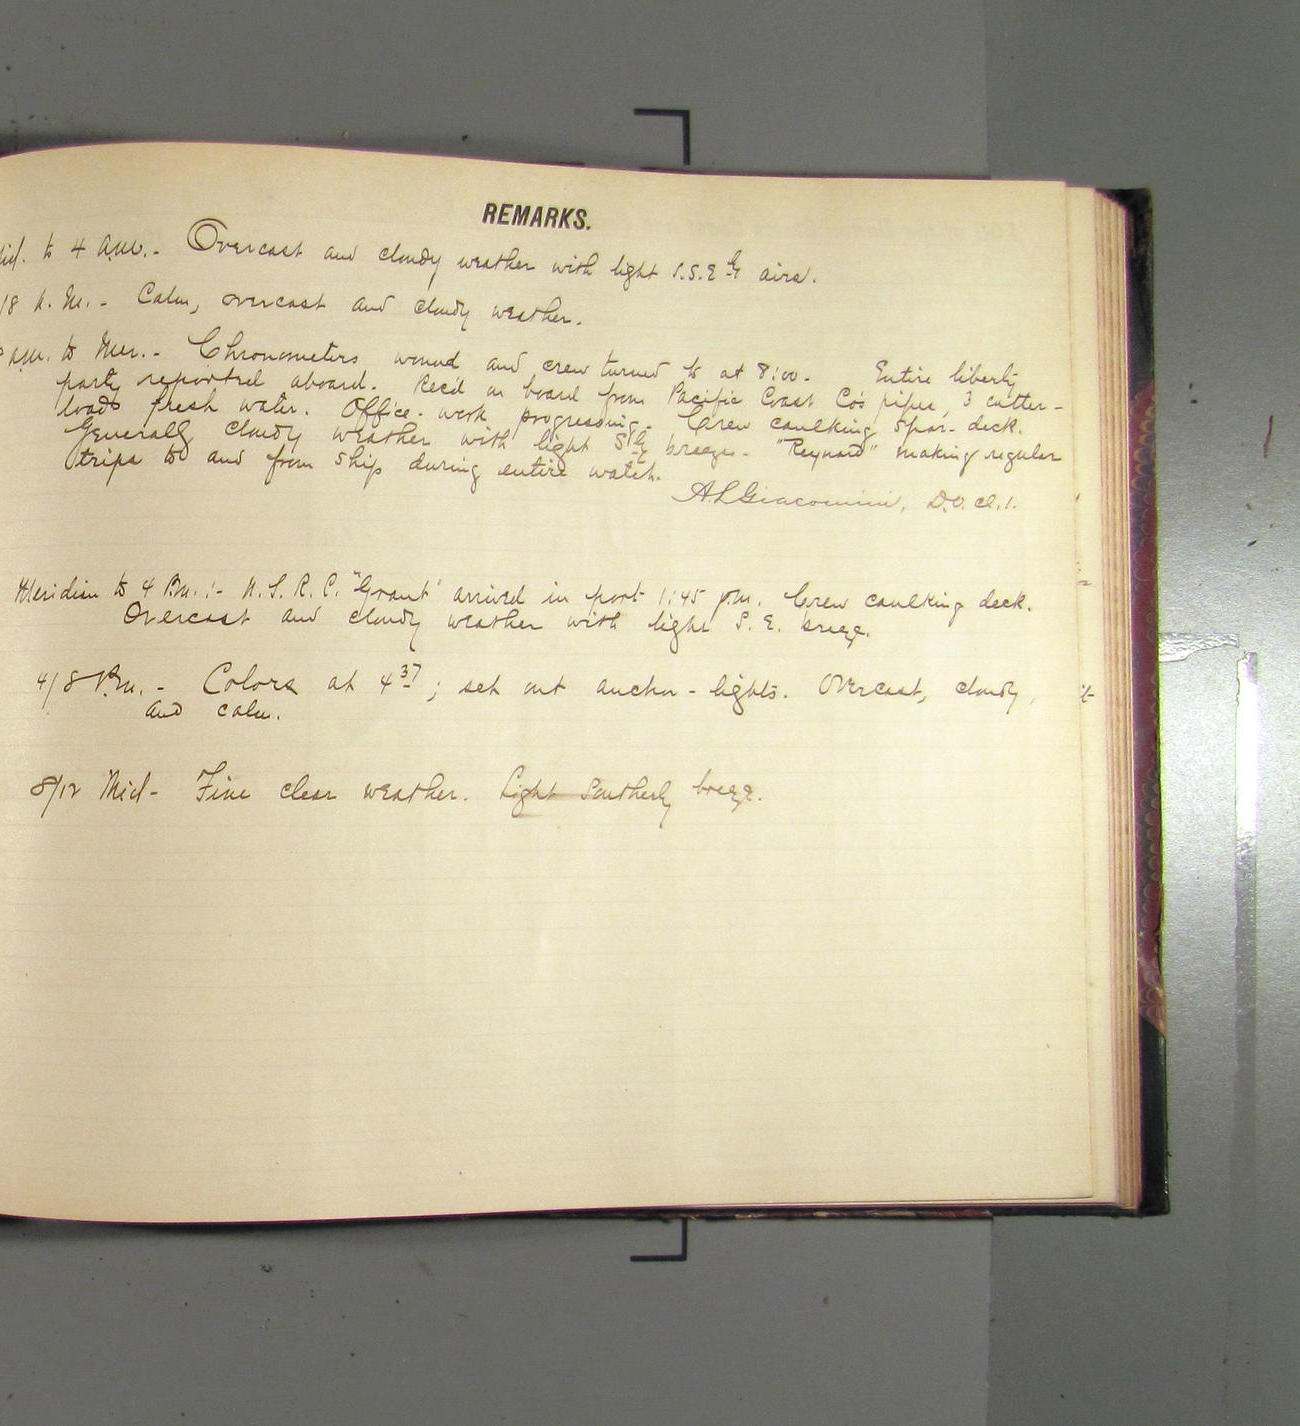 REMARKS.
Mid. to 4 a.m.- Overcast and cloudy weather with light S.S.E'ly airs.
/8 A.M.- Calm, overcast and cloudy weather.
8 a.m. to Mer.- Chronometers wound and crew turned to at 8:00. Entire liberty
party reported aboard. Rec'd on board from Pacific Coast Co's pipes, 3 cutter-
loads fresh water. Office-work progressing. Crew caulking spar-deck.
Generally cloudy weather with light S'ly breeze. "Reynard" making regular
trips to and from ship during entire watch.
A.L. Giacomini, D.O. Cl.1.
Meridian to 4 P.m.:- U.S.R.C. "Grant" arrived in port 1:45 p.m. Crew caulking deck.
Overcast and cloudy weather with light S.E. breeze.
4/8 P.m.- Colors at 4 37; set out anchor-lights. Overcast, cloudy,
and calm.
8/12 Mid- Fine clear weather. Light Southerly breeze.